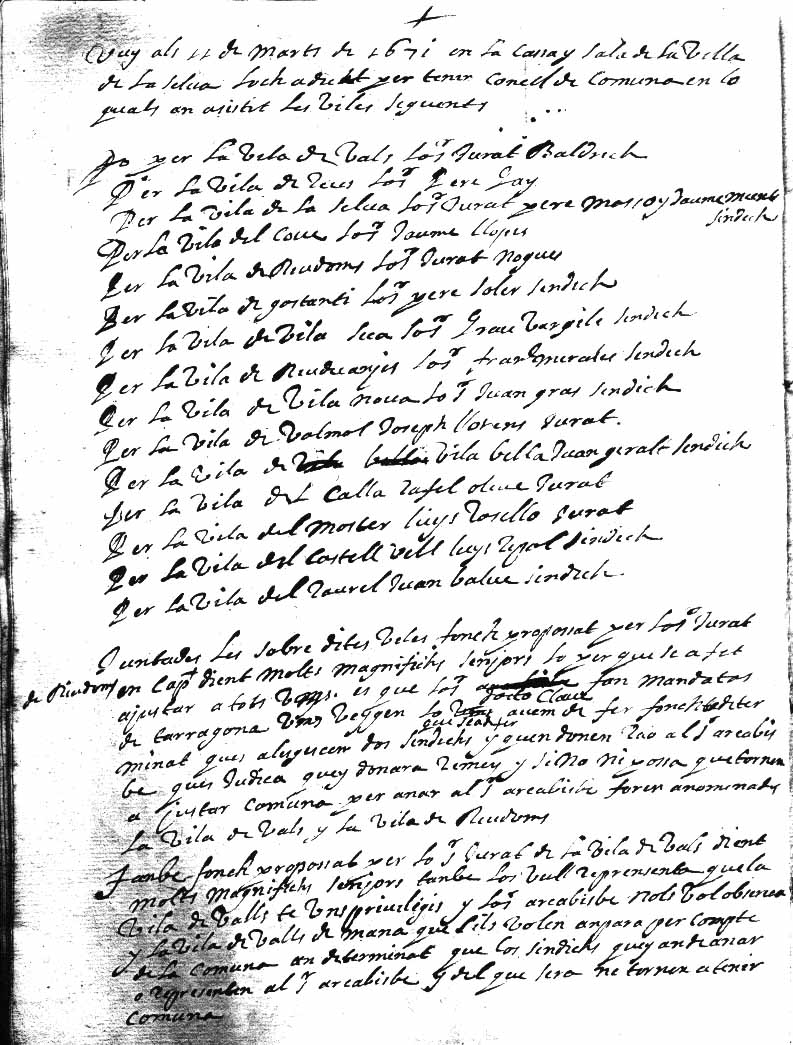 Vuy als 11 de Marts de 1671 en la Cassa y Sala de la Vella
de la Selva loch adient per tenir Consell de Comuna en lo
quals an asistit les viles seguents
Po per la vila de Vals lo Sr Jurat Baldrich
Per la vila de Reus lo Sr Pere Gay
Per la vila de la Selva lo Sr Jurat pere Masso y Jaume
sindich
Per la vila del Cove lo Sr Jaume llopis
Per la vila de Riudoms lo Sr Jurat Nogues
Per la vila de gostanti lo Sr pere Soler sindich
Per la vila de Vila Seca lo Sr Grau Vargile sindich
Per la vila de Riudecanjes lo Sr Miralles sindich
Per la vila de Vila nova lo Sr Juan gras sindich
Per la vila de Valmol Joseph llorens Jurat.
Per la vila de Vila bella Juan geralt sindich
Per la vila del Calla Rafel olive Jurat
Per la vila del Moster lluys Rosello Jurat
Per la vila del Castell vell lluys sindich
Per la vila del Jaurel Juan Balue sindich.
Juntades les sobre dites Veles fonch propossat per lo Sr Jurat
de Riudoms en Cap dient Molts Magnifichs senjors lo per que se a fet
ajustar a tots Vms. es que lo Sr fan mandatos
facto Claux
de tarragona Vms Vejgen lo avem de fer fonch diter
que se a de fer
minat ques alegescen dos sindichs y quen donen rao al Sr arcabis
be ques Judica quey donara remey y si No ni possa que tornen
a justar Comuna per anar al Sr arcabisbe foren anomenades
la Vila de Vals y la Vila de Riudoms
Tanbe fonch propossat per lo Sr Jurat de la Vila de Vals dient
Molts Magnifichs senjors tanbe los Vull representa que la
Vila de Valls te Uns privilegis y lo Sr arcabisbe Nols Vol observa
y la Vila de Valls de mana que lils Volen anpara per Compte
de la Comuna an determinat que los sindichs quey an de anar
o representen al Sr arcabisbe y del que sera ne tornen a tenir
Comuna